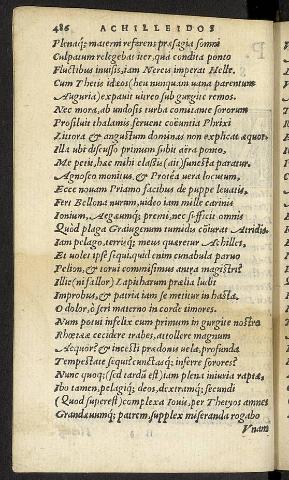 486 ACHILLEIDOS
Plenaq; materni referens præsagia somni
Culpatum relegebat iter, qua condita ponto
Fluctibus inuisis, iam Nereis imperat Helle.
Cum Thetis idæo (heu nunquam uana parentum
Auguria) expauit uitreo sub gurgite remos.
Nec mora, ab undosis turba comitante sororum
Prosiluit thalamis feruent coëuntia Phrixi
Littora & angustum dominas non explicat æquor.
Illa ubi discusso primum subit aëra ponto,
Me petit, hæc mihi classis (ait) funesta paratur.
Agnosco monitus, & Protea uera locutum,
Ecce nouam Priamo facibus de puppe leuatis,
Fert Bellona nurum, uideo iam mille carinis
Ionium, Aegæumq; premi, nec sufficit omnis
Quòd plaga Graiugenum tumidis coiurat Atridis.
Iam pelago, terrisq; meus quæretur Achilles,
Et uolet ipse sequi, quid enim cunabula paruo
Pelion, & torui commisimus antra magistri?
Illic (ni fallor) Lapitharum prælia ludit
Improbus, & patria iam se metitur in hasta.
O dolor, ò seri materno in corde timores.
Non potui infelix cum primum in gurgite nostro
Rhœteæ cecidere trabes, attollere magnum
Aequor? & incesti prædonis uela, profunda
Tempestate sequi? cunctasq; inferre sorores?
Nunc quoq; (sed tardū est) iam plena iniuria raptæ,
Ibo tamen, pelagiq; deos, dextramq; secundi
(Quod superest) complexa Iouis, per Thetyos amnes
Grandæuumq; patrem, supplex miseranda rogabo
Vnam